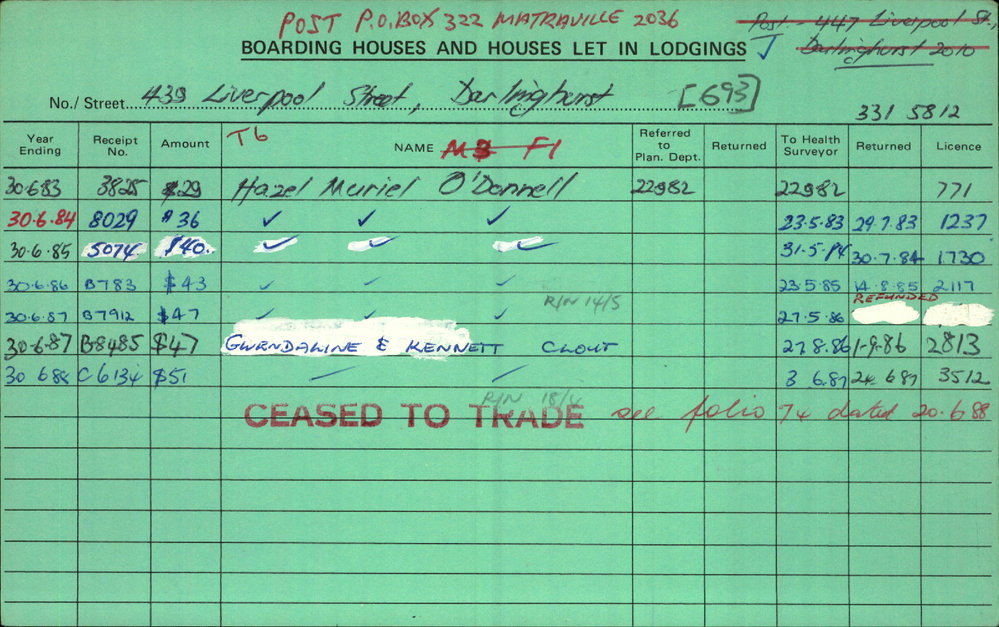 POST P.O. BOX 322 MATRAVILLE 2036
Post - 447 Liverpool St.,
Darlinghurst 2010
BOARDING HOUSES AND HOUSES LET IN LODGINGS
No./ Street 439 Liverpool Street, Darlinghurst [693]
331 5812
Year Ending Receipt No. Amount T6 NAME M3 F1 Referred to Plan. Dept. Returned To Health Surveyor Returned Licence
30.6.83 3825 $29 Hazel Muriel O'Donnell 22982 22982 771
30.6.84 8029 $36 ✓ ✓ ✓ 23.5.83 29.7.83 1237
30.6.85 5074. $40. ✓ ✓ ✓ 31.5.84 30.7.84 1730
30.6.86 B783 $43 ✓ ✓ ✓ 23.5.85 14.8.85 2117
R/N 14/5 REFUNDED
30.6.87 B7912 $47 ✓ ✓ ✓ 27.5.86
30.6.87 B8485 $47 GWENDALINE & KENNETT CLOUT 27.8.86 1-9.86 2813
30 6 88 C6134 $51 ✓ ✓ 3 6.87 24 6 87 3512
R/N 18/4
CEASED TO TRADE see folio 74 dated 20.6.88